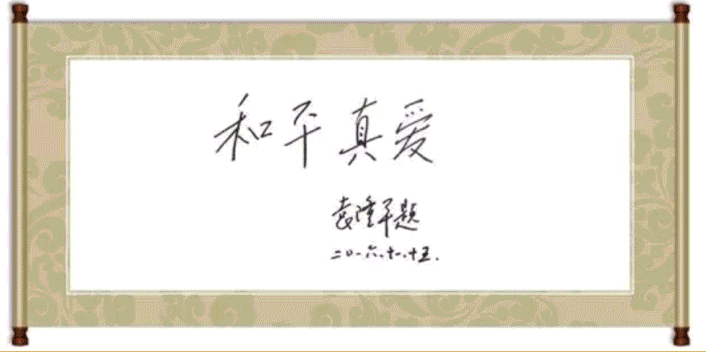 和平真爱
袁隆平题
二〇一六.十一.十五.